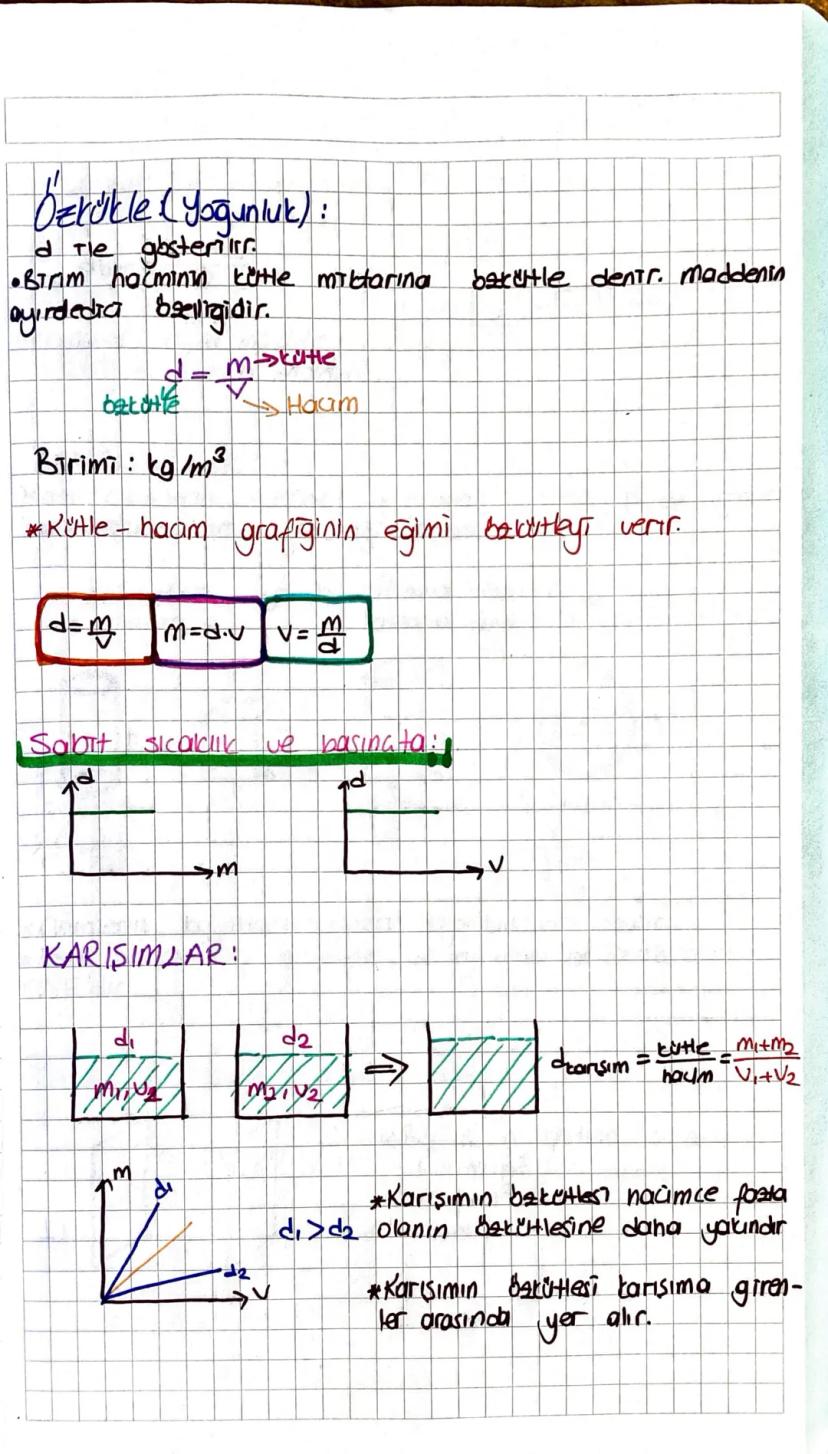 Özkütle (Yoğunluk) :
d ile gösterilir.
• Birim hacminin kütle miktarına özkütle denir. maddenin
ayırdedici özelliğidir.
d = m/V → kütle
özkütle → Hacim
Birimi : kg/m³
* Kütle - hacim grafiğinin eğimi özkütleyi verir.
d = m/V m = d.v v = m/d
Sabit sıcaklık ve basınçta :
d d
m V
KARIŞIMLAR :
d1 d2
m1, v1 m2, v2 ⇒ dkarışım = kütle/hacim = m1+m2/V1+V2
m
d1
d2
V
d1 > d2
* Karışımın özkütlesi hacimce fazla
olanın özkütlesine daha yakındır
* Karışımın özkütlesi karışıma giren-
ler arasında yer alır.